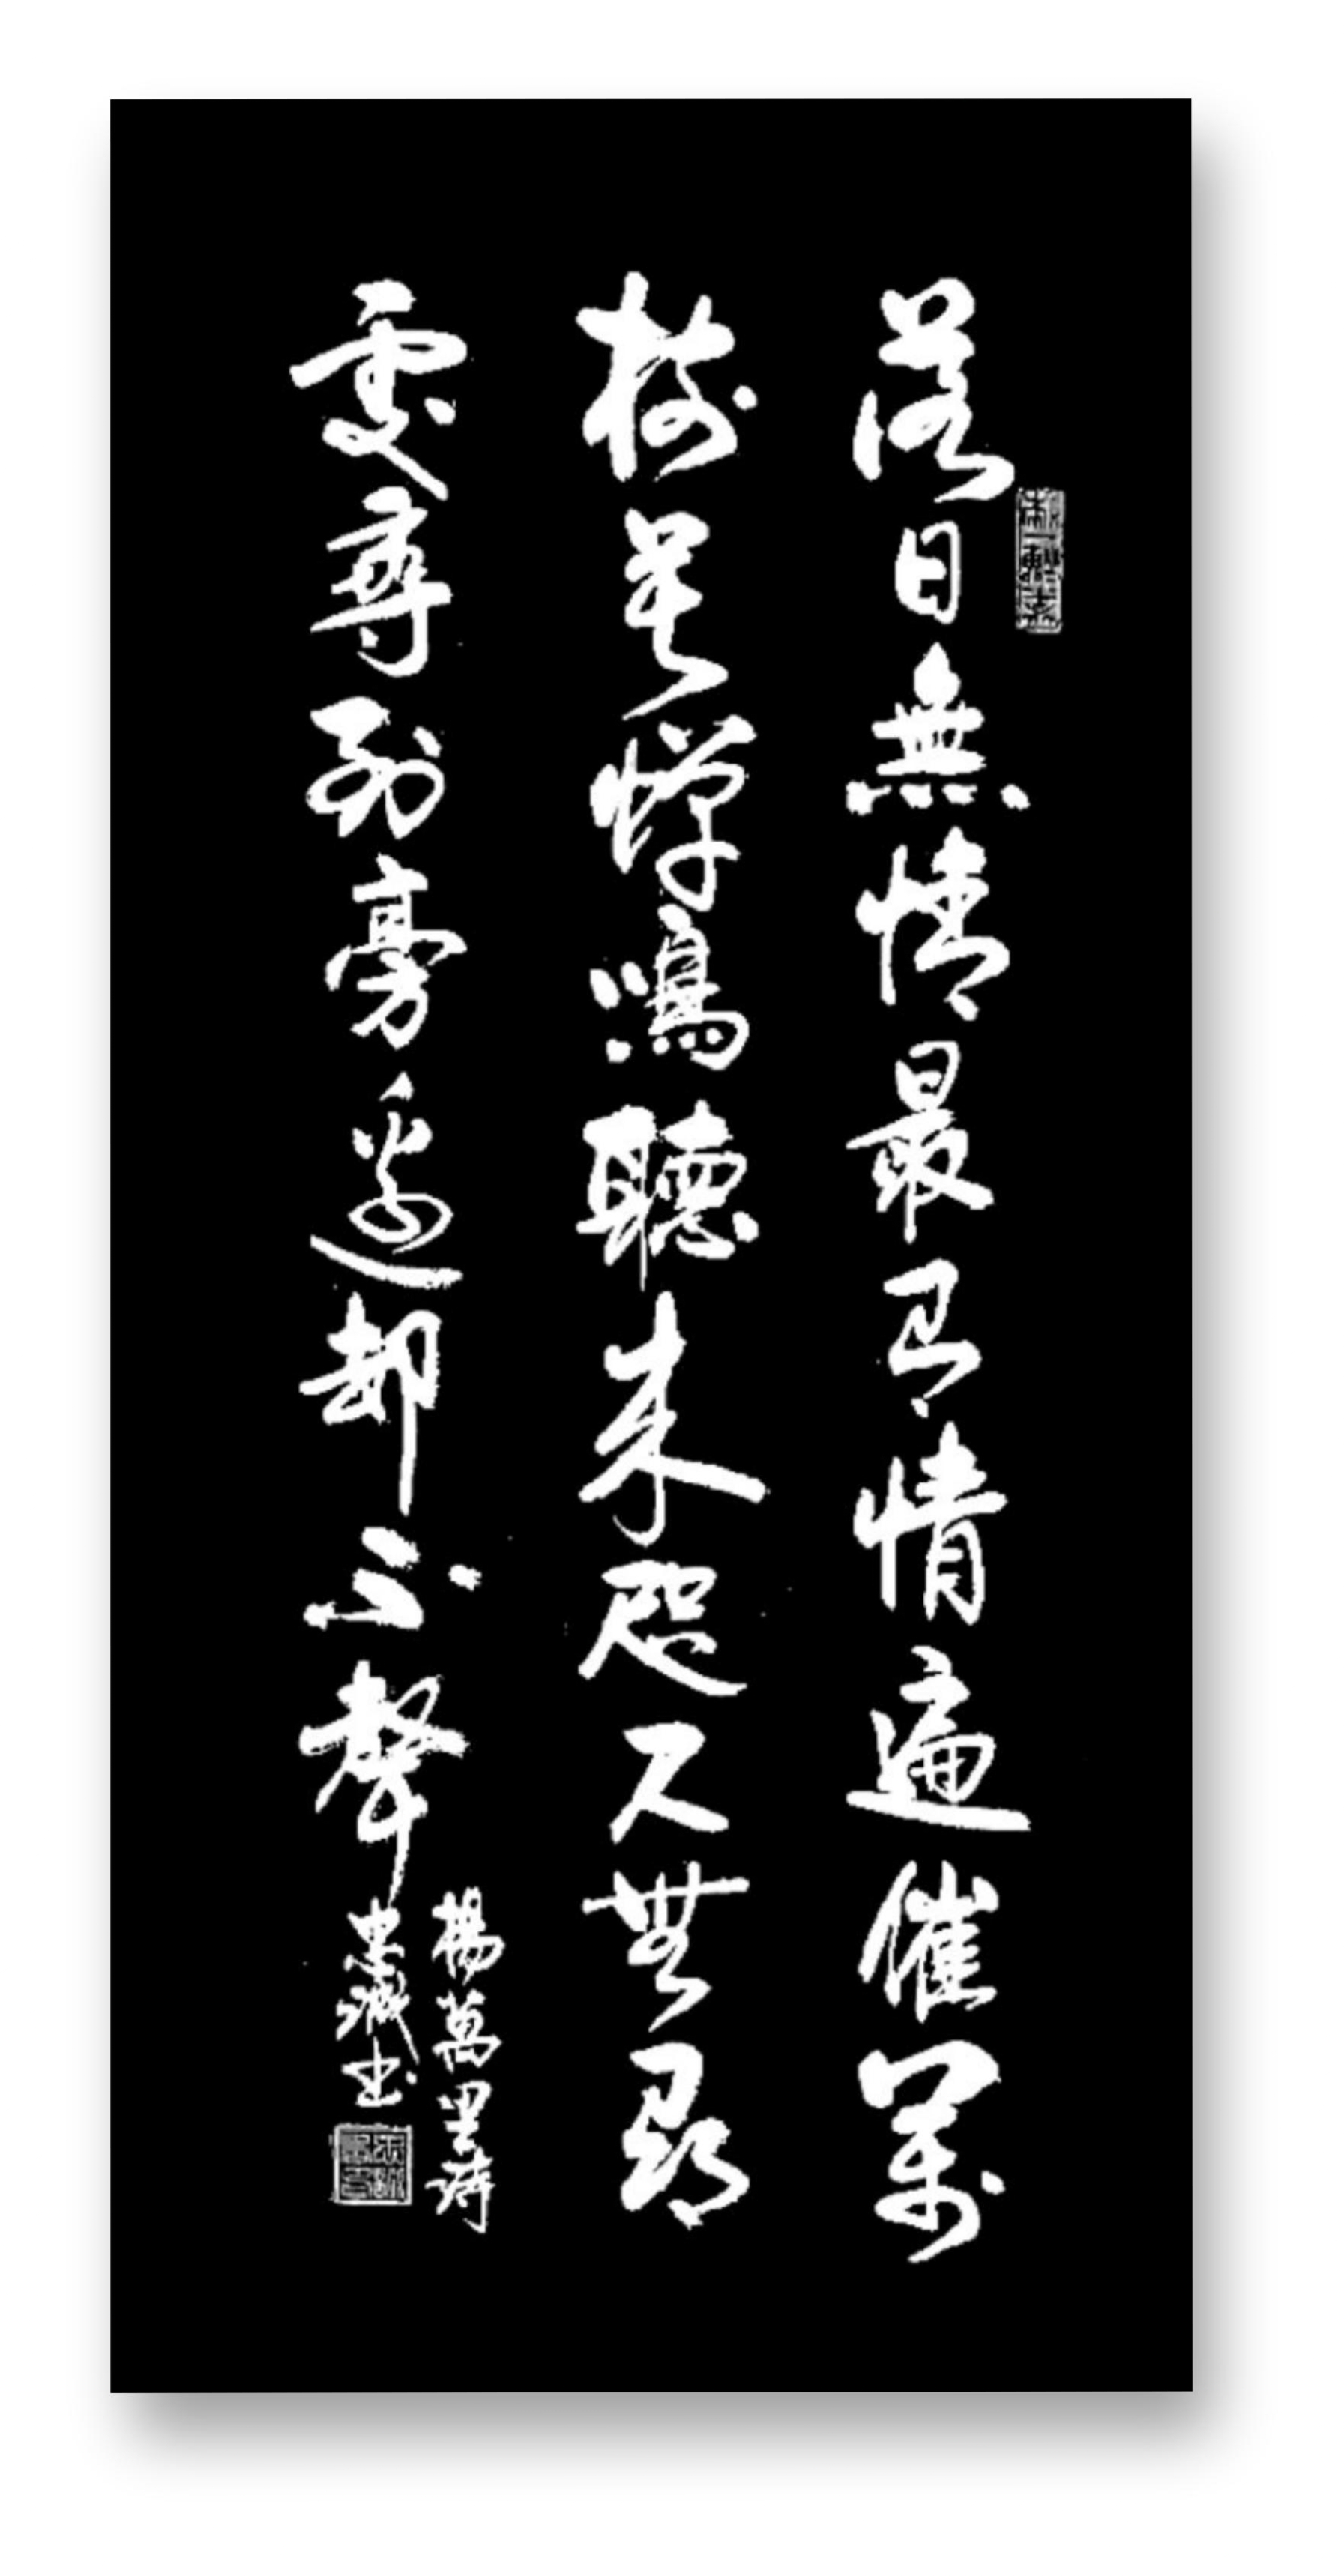 落日無情最有情遍催萬
樹暮蟬鳴聽来咫尺無尋
處尋到旁邊却不聲
楊萬里詩
忠誠書